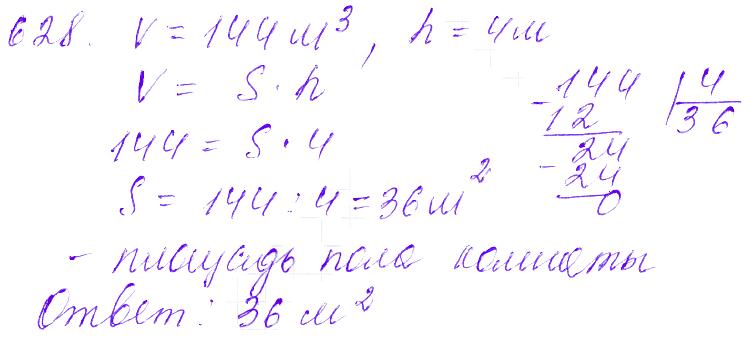 628. V = 144 м³, h = 4 м
V = S · h
144 = S · 4
S = 144 : 4 = 36 м²
- площадь пола комнаты
Ответ: 36 м²
-144 | 4
12 36
24
- 24
0